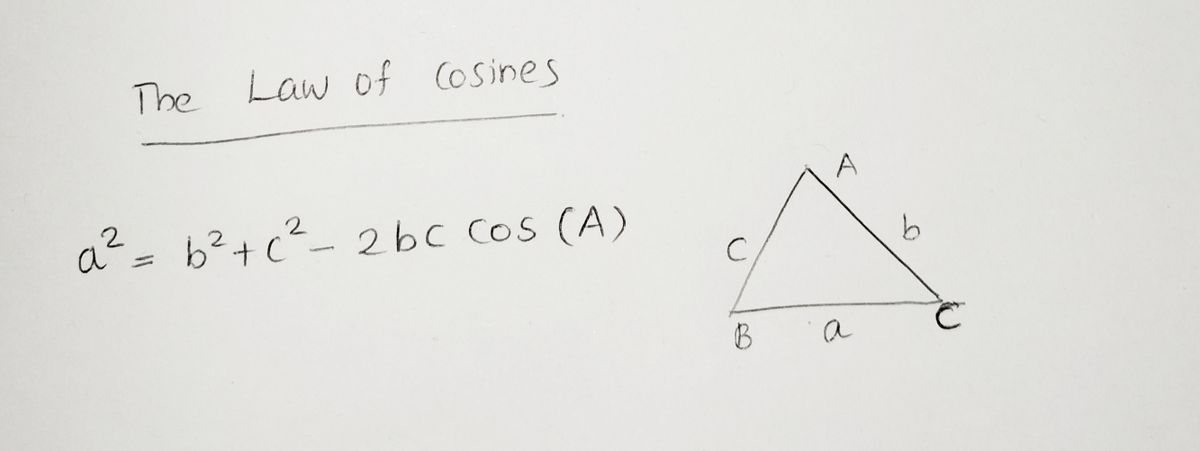 The Law of Cosines
a² = b² + c² - 2bc cos (A)
A
b
c
B
a
C